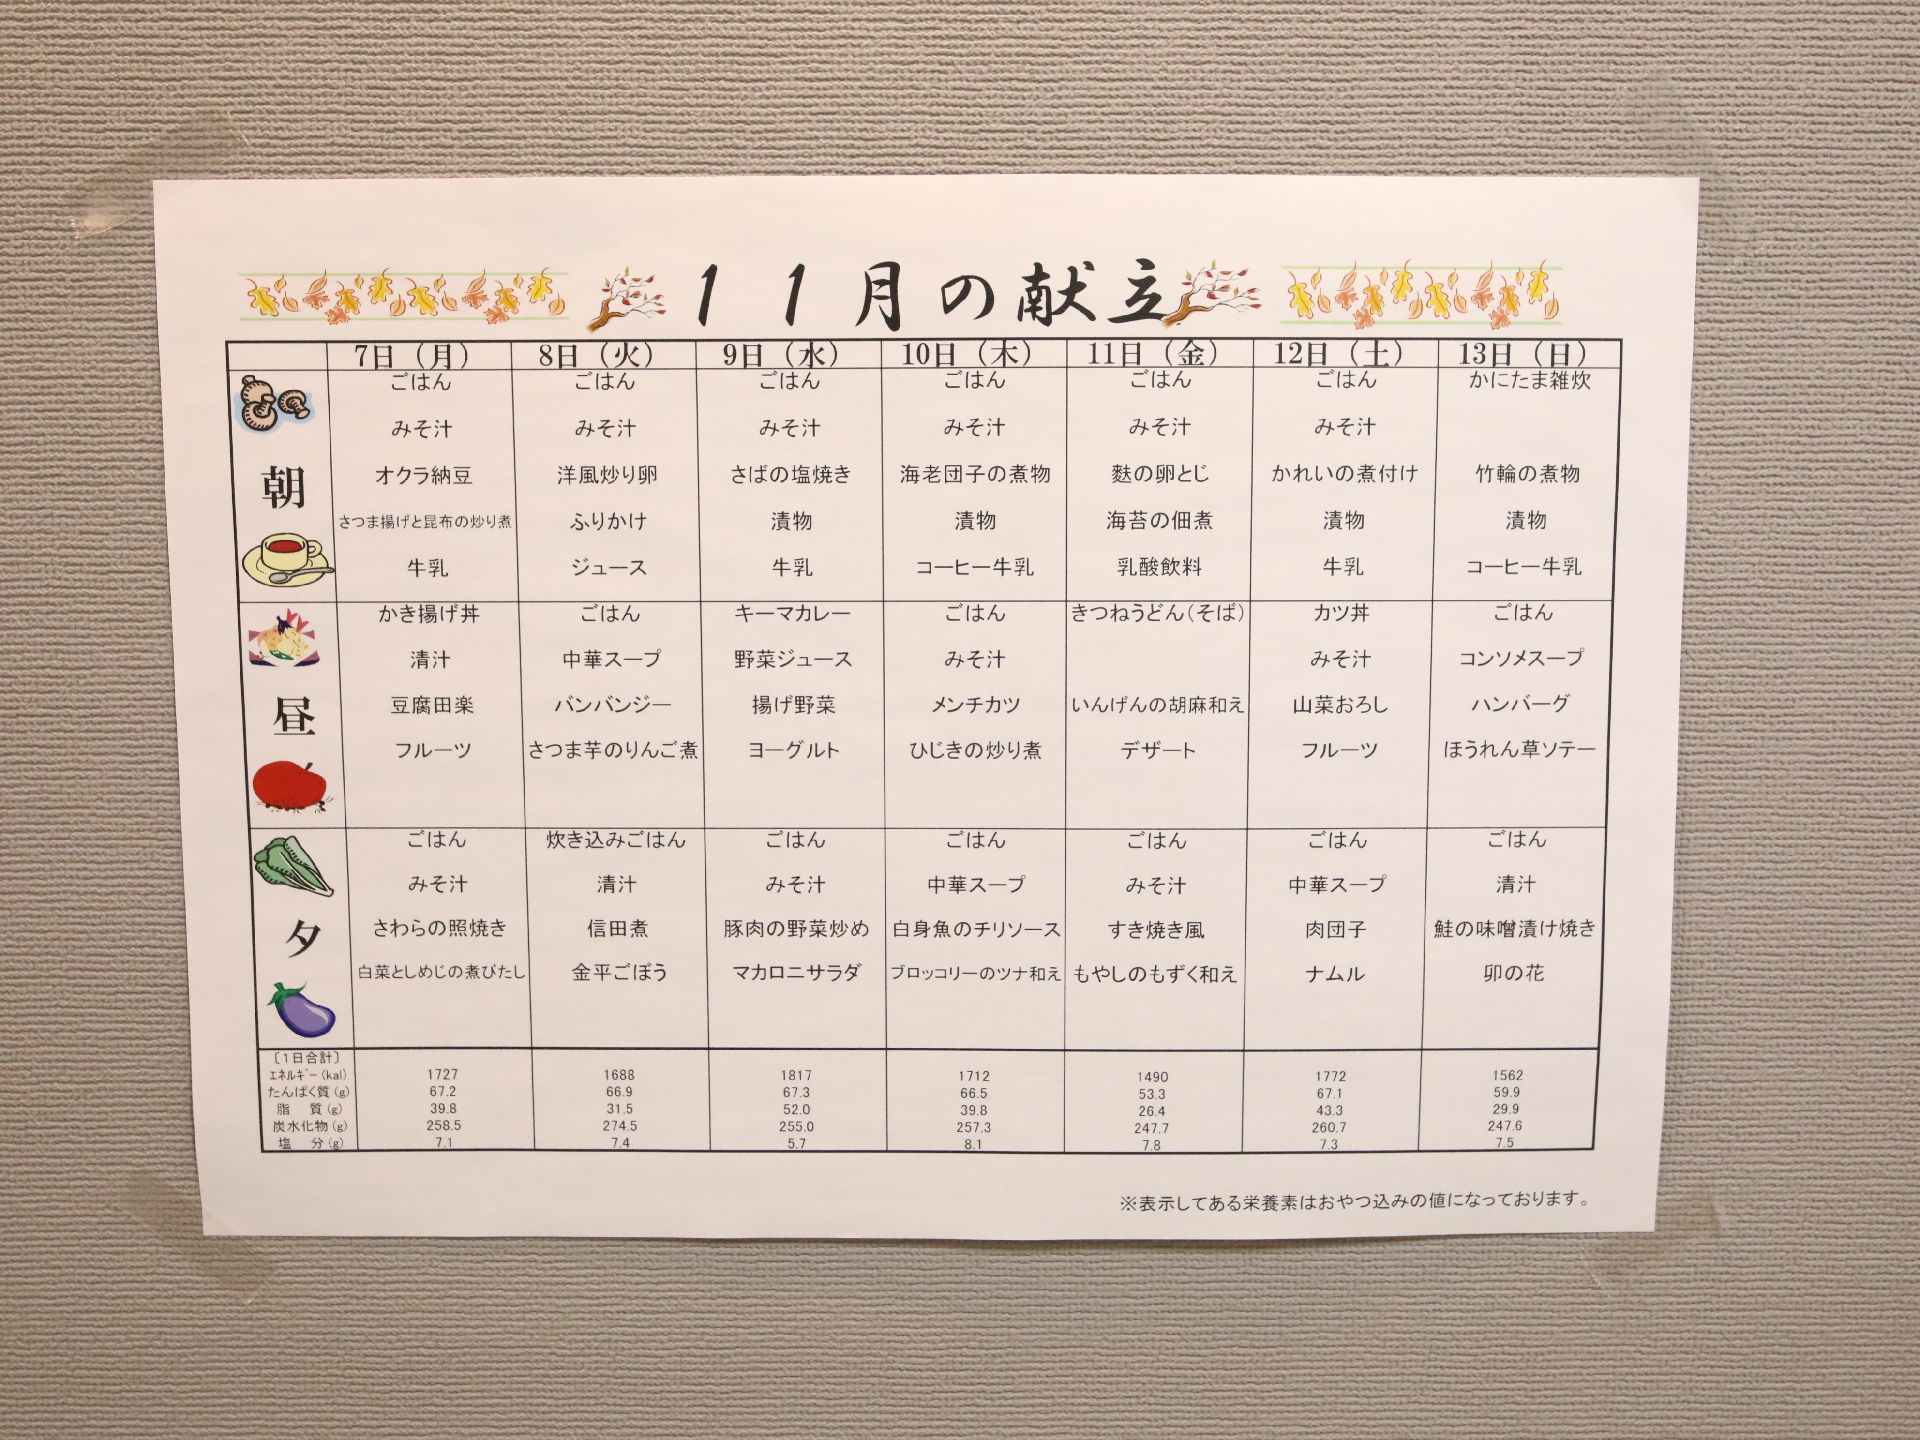 11月の献立
7日（月） 8日（火） 9日（水） 10日（木） 11日（金） 12日（土） 13日（日）
朝
ごはん ごはん ごはん ごはん ごはん ごはん かにたま雑炊
みそ汁 みそ汁 みそ汁 みそ汁 みそ汁 みそ汁
オクラ納豆 洋風炒り卵 さばの塩焼き 海老団子の煮物 麩の卵とじ かれいの煮付け 竹輪の煮物
さつま揚げと昆布の炒り煮 ふりかけ 漬物 漬物 海苔の佃煮 漬物 漬物
牛乳 ジュース 牛乳 コーヒー牛乳 乳酸飲料 牛乳 コーヒー牛乳
昼
かき揚げ丼 ごはん キーマカレー ごはん きつねうどん（そば） カツ丼 ごはん
清汁 中華スープ 野菜ジュース みそ汁 みそ汁 コンソメスープ
豆腐田楽 バンバンジー 揚げ野菜 メンチカツ いんげんの胡麻和え 山菜おろし ハンバーグ
フルーツ さつま芋のりんご煮 ヨーグルト ひじきの炒り煮 デザート フルーツ ほうれん草ソテー
夕
ごはん 炊き込みごはん ごはん ごはん ごはん ごはん ごはん
みそ汁 清汁 みそ汁 中華スープ みそ汁 中華スープ 清汁
さわらの照焼き 信田煮 豚肉の野菜炒め 白身魚のチリソース すき焼き風 肉団子 鮭の味噌漬け焼き
白菜としめじの煮びたし 金平ごぼう マカロニサラダ ブロッコリーのツナ和え もやしのもずく和え ナムル 卯の花
〔1日合計〕
エネルギー(kal) 1727 1688 1817 1712 1490 1772 1562
たんぱく質(g) 67.2 66.9 67.3 66.5 53.3 67.1 59.9
脂 質(g) 39.8 31.5 52.0 39.8 26.4 43.3 29.9
炭水化物(g) 258.5 274.5 255.0 257.3 247.7 260.7 247.6
塩 分(g) 7.1 7.4 5.7 8.1 7.8 7.3 7.5
※表示してある栄養素はおやつ込みの値になっております。